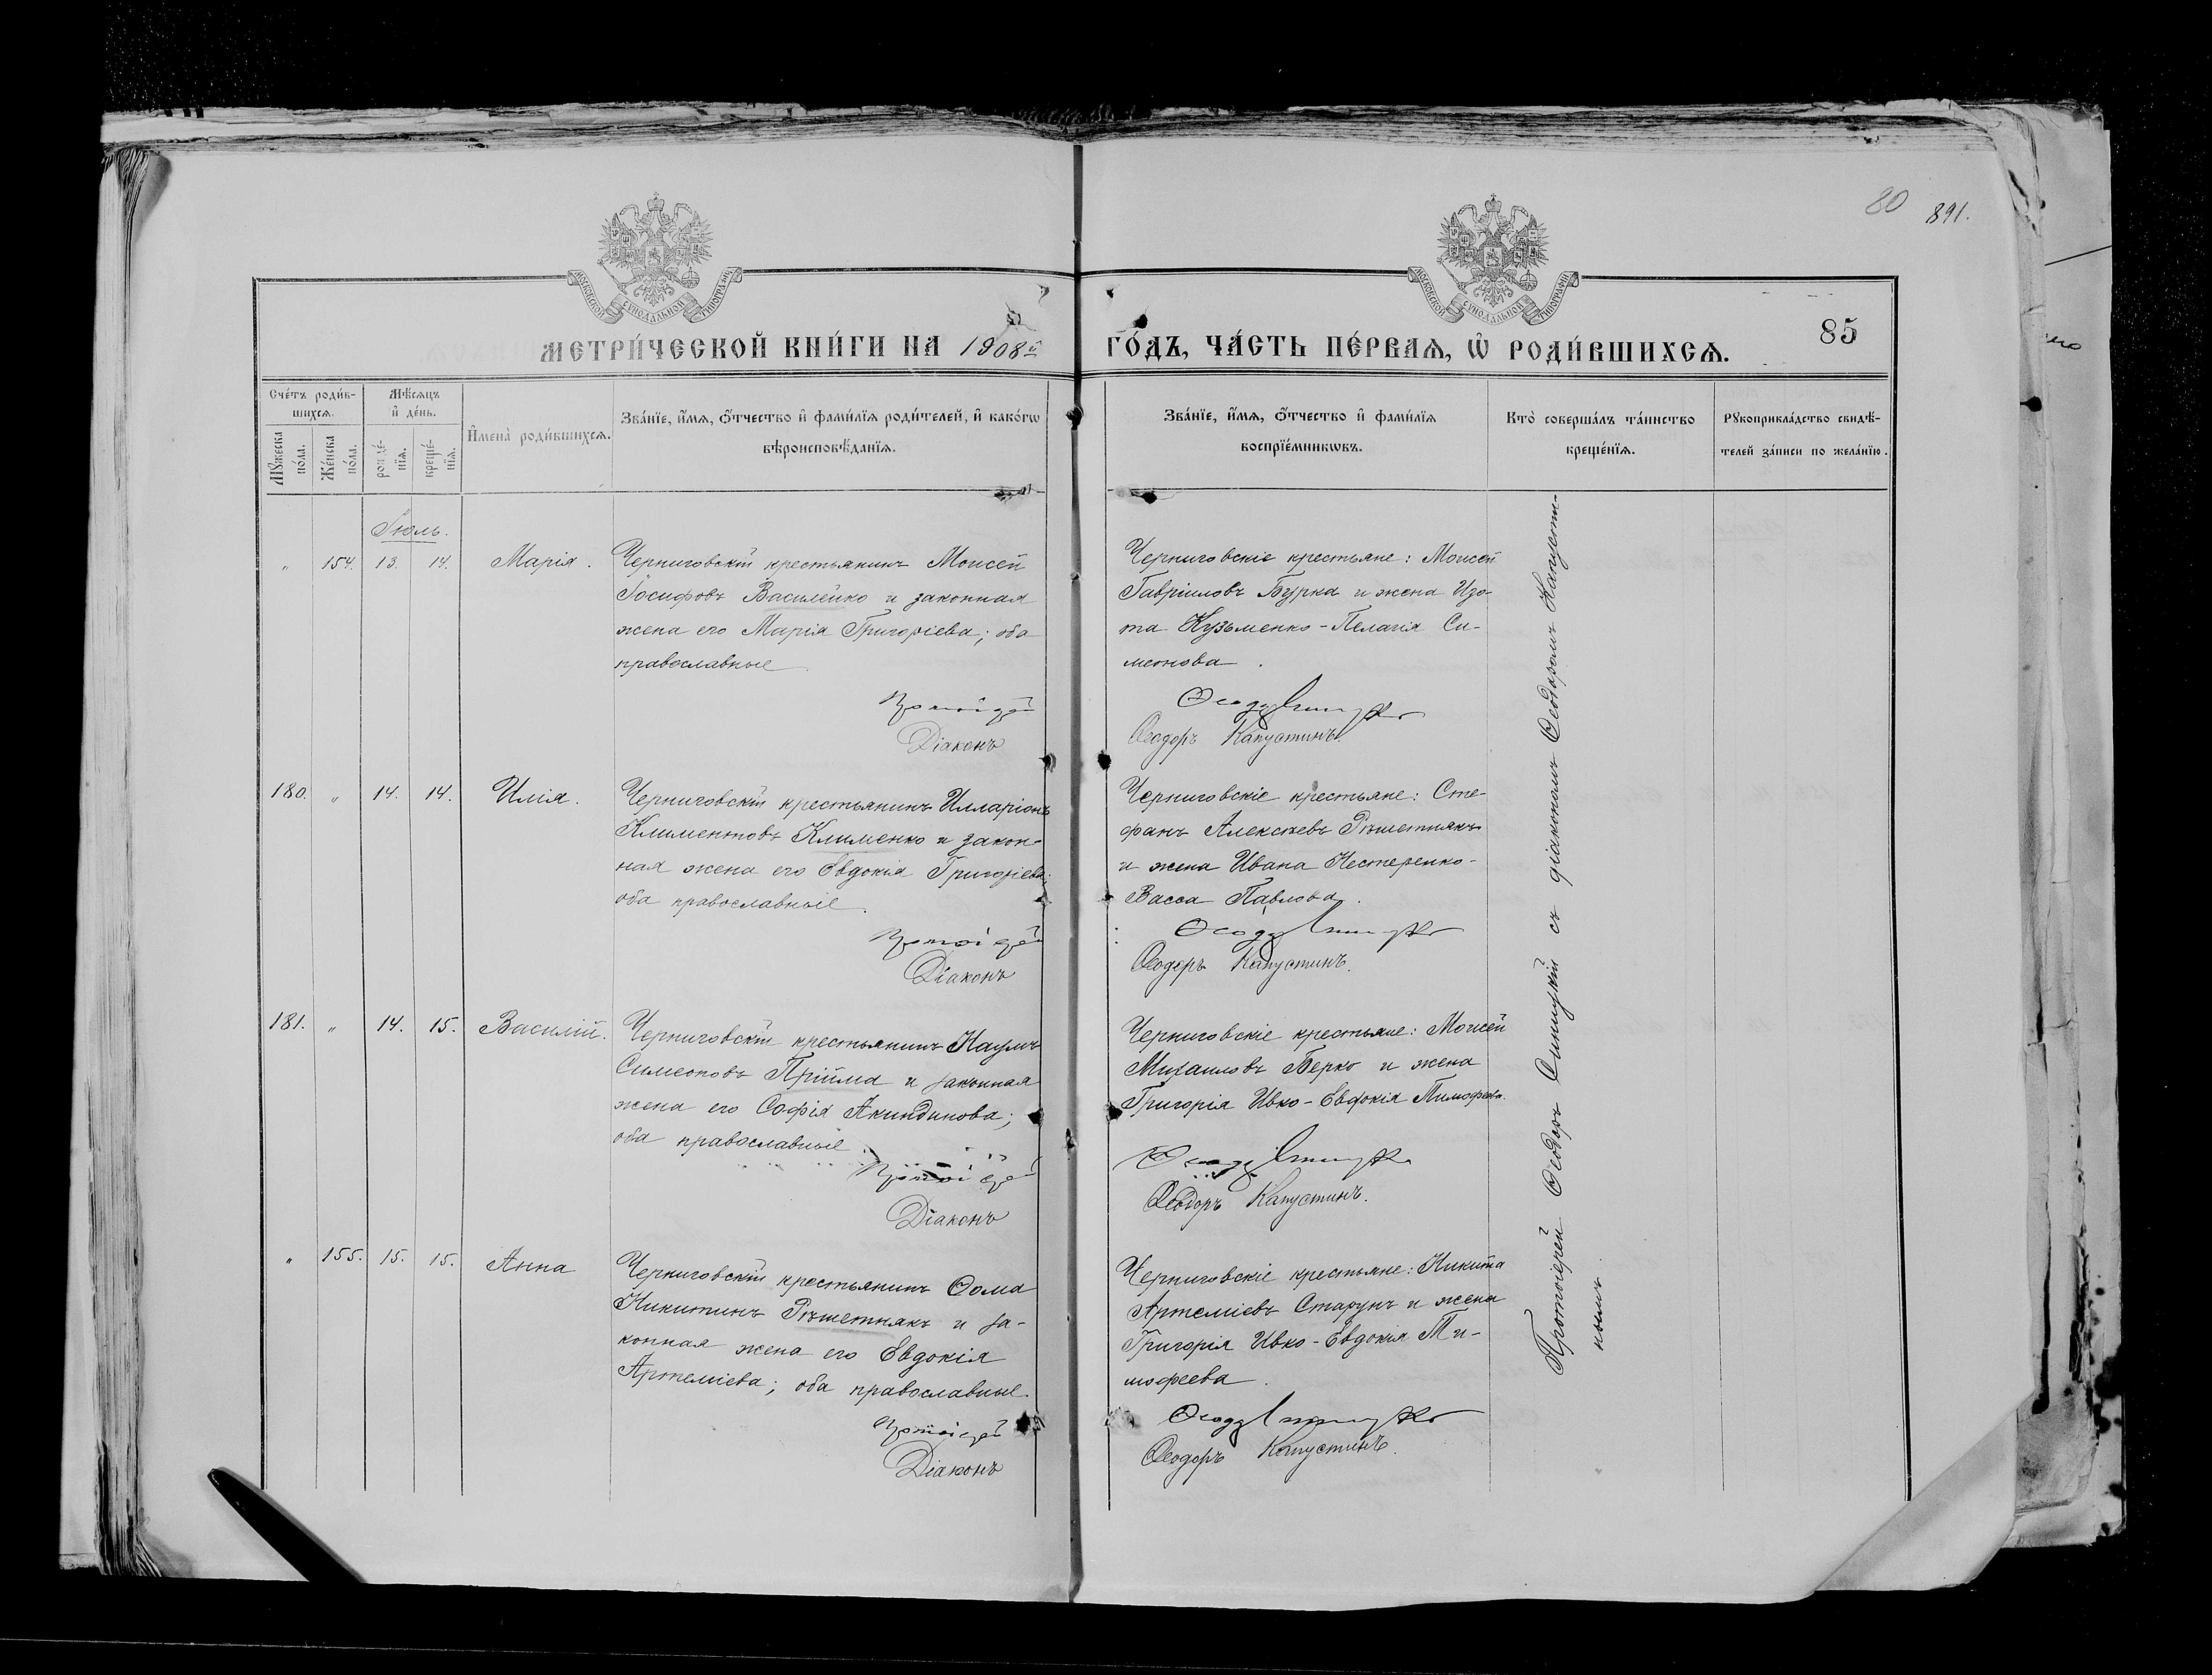 80 891.
МОСКОВСКОЙ СУНОДАЛЬНОЙ ТИПОГРАФІИ
МОСКОВСКОЙ СУНОДАЛЬНОЙ ТИПОГРАФІИ
85
МЕТРИ́ЧЕСКОЙ КНИ́ГИ НА 1908й
ГО́ДЪ, ЧА́СТЬ ПЕ́РВАЯ, Ѡ РОДИ́ВШИХСЯ.
Сче́тъ роди́в-
шихся.
Мꙋ́жеска по́ла.
Же́нска по́ла.
Мѣ́сяцъ
и де́нь.
рожде́-
нїя.
креще́-
нїя.
И҆мена̀ роди́вшихся.
Зва́нїе, и҆́мя, ѻ҆́тчество и҆ фами́лїя роди́телей, и҆ како́гѡ
вѣроисповѣ́данїя.
Зва́нїе, и҆́мя, ѻ҆́тчество и҆ фами́лїя
воспрїе́мникѡвъ.
Кто̀ соверша́лъ та́инство
креще́нїя.
Рꙋкоприкла́дство свидѣ́-
телей за́писи по жела́нїю.
Іюль.
" 154. 13. 14. Марія.
Черниговскій крестьянинъ Моисей
Іосифовъ Василейко и законная
жена его Марія Григоріева; оба
православные
Протоіерей
Діаконъ
Черниговскіе крестьяне: Моисей
Гавріиловъ Бурка и жена Изо-
та Кузьменко - Пелагія Си-
меонова.
Ѳеодоръ Капустинъ.
180. " 14. 14. Илія.
Черниговскій крестьянинъ Илларіонъ
Климентовъ Клименко и закон-
ная жена его Евдокія Григоріева;
оба православные.
Протоіерей
Діаконъ
Черниговскіе крестьяне: Сте-
фанъ Алексѣевъ Рѣшетнякъ
и жена Ивана Нестеренко-
Васса Павлова.
Ѳеодоръ Капустинъ.
181. " 14. 15. Василій.
Черниговскій крестьянинъ Наумъ
Симеоновъ Прійма и законная
жена его Софія Акиндинова;
оба православные.
Протоіерей
Діаконъ
Черниговскіе крестьяне: Моисей
Михаиловъ Берко и жена
Григорія Ивко - Евдокія Тимофеева.
Ѳеодоръ Капустинъ.
" 155. 15. 15. Анна
Черниговскій крестьянинъ Ѳома
Никитинъ Рѣшетнякъ и за-
конная жена его Евдокія
Артеміева; оба православные.
Протоіерей
Діаконъ
Черниговскіе крестьяне: Никита
Артеміевъ Старунъ и жена
Григорія Ивко - Евдокія Ти-
мофеева.
Ѳеодоръ Капустинъ.
Протоіерей Ѳеодоръ Синицкій съ діакономъ Ѳеодоромъ Капусти-
нымъ.